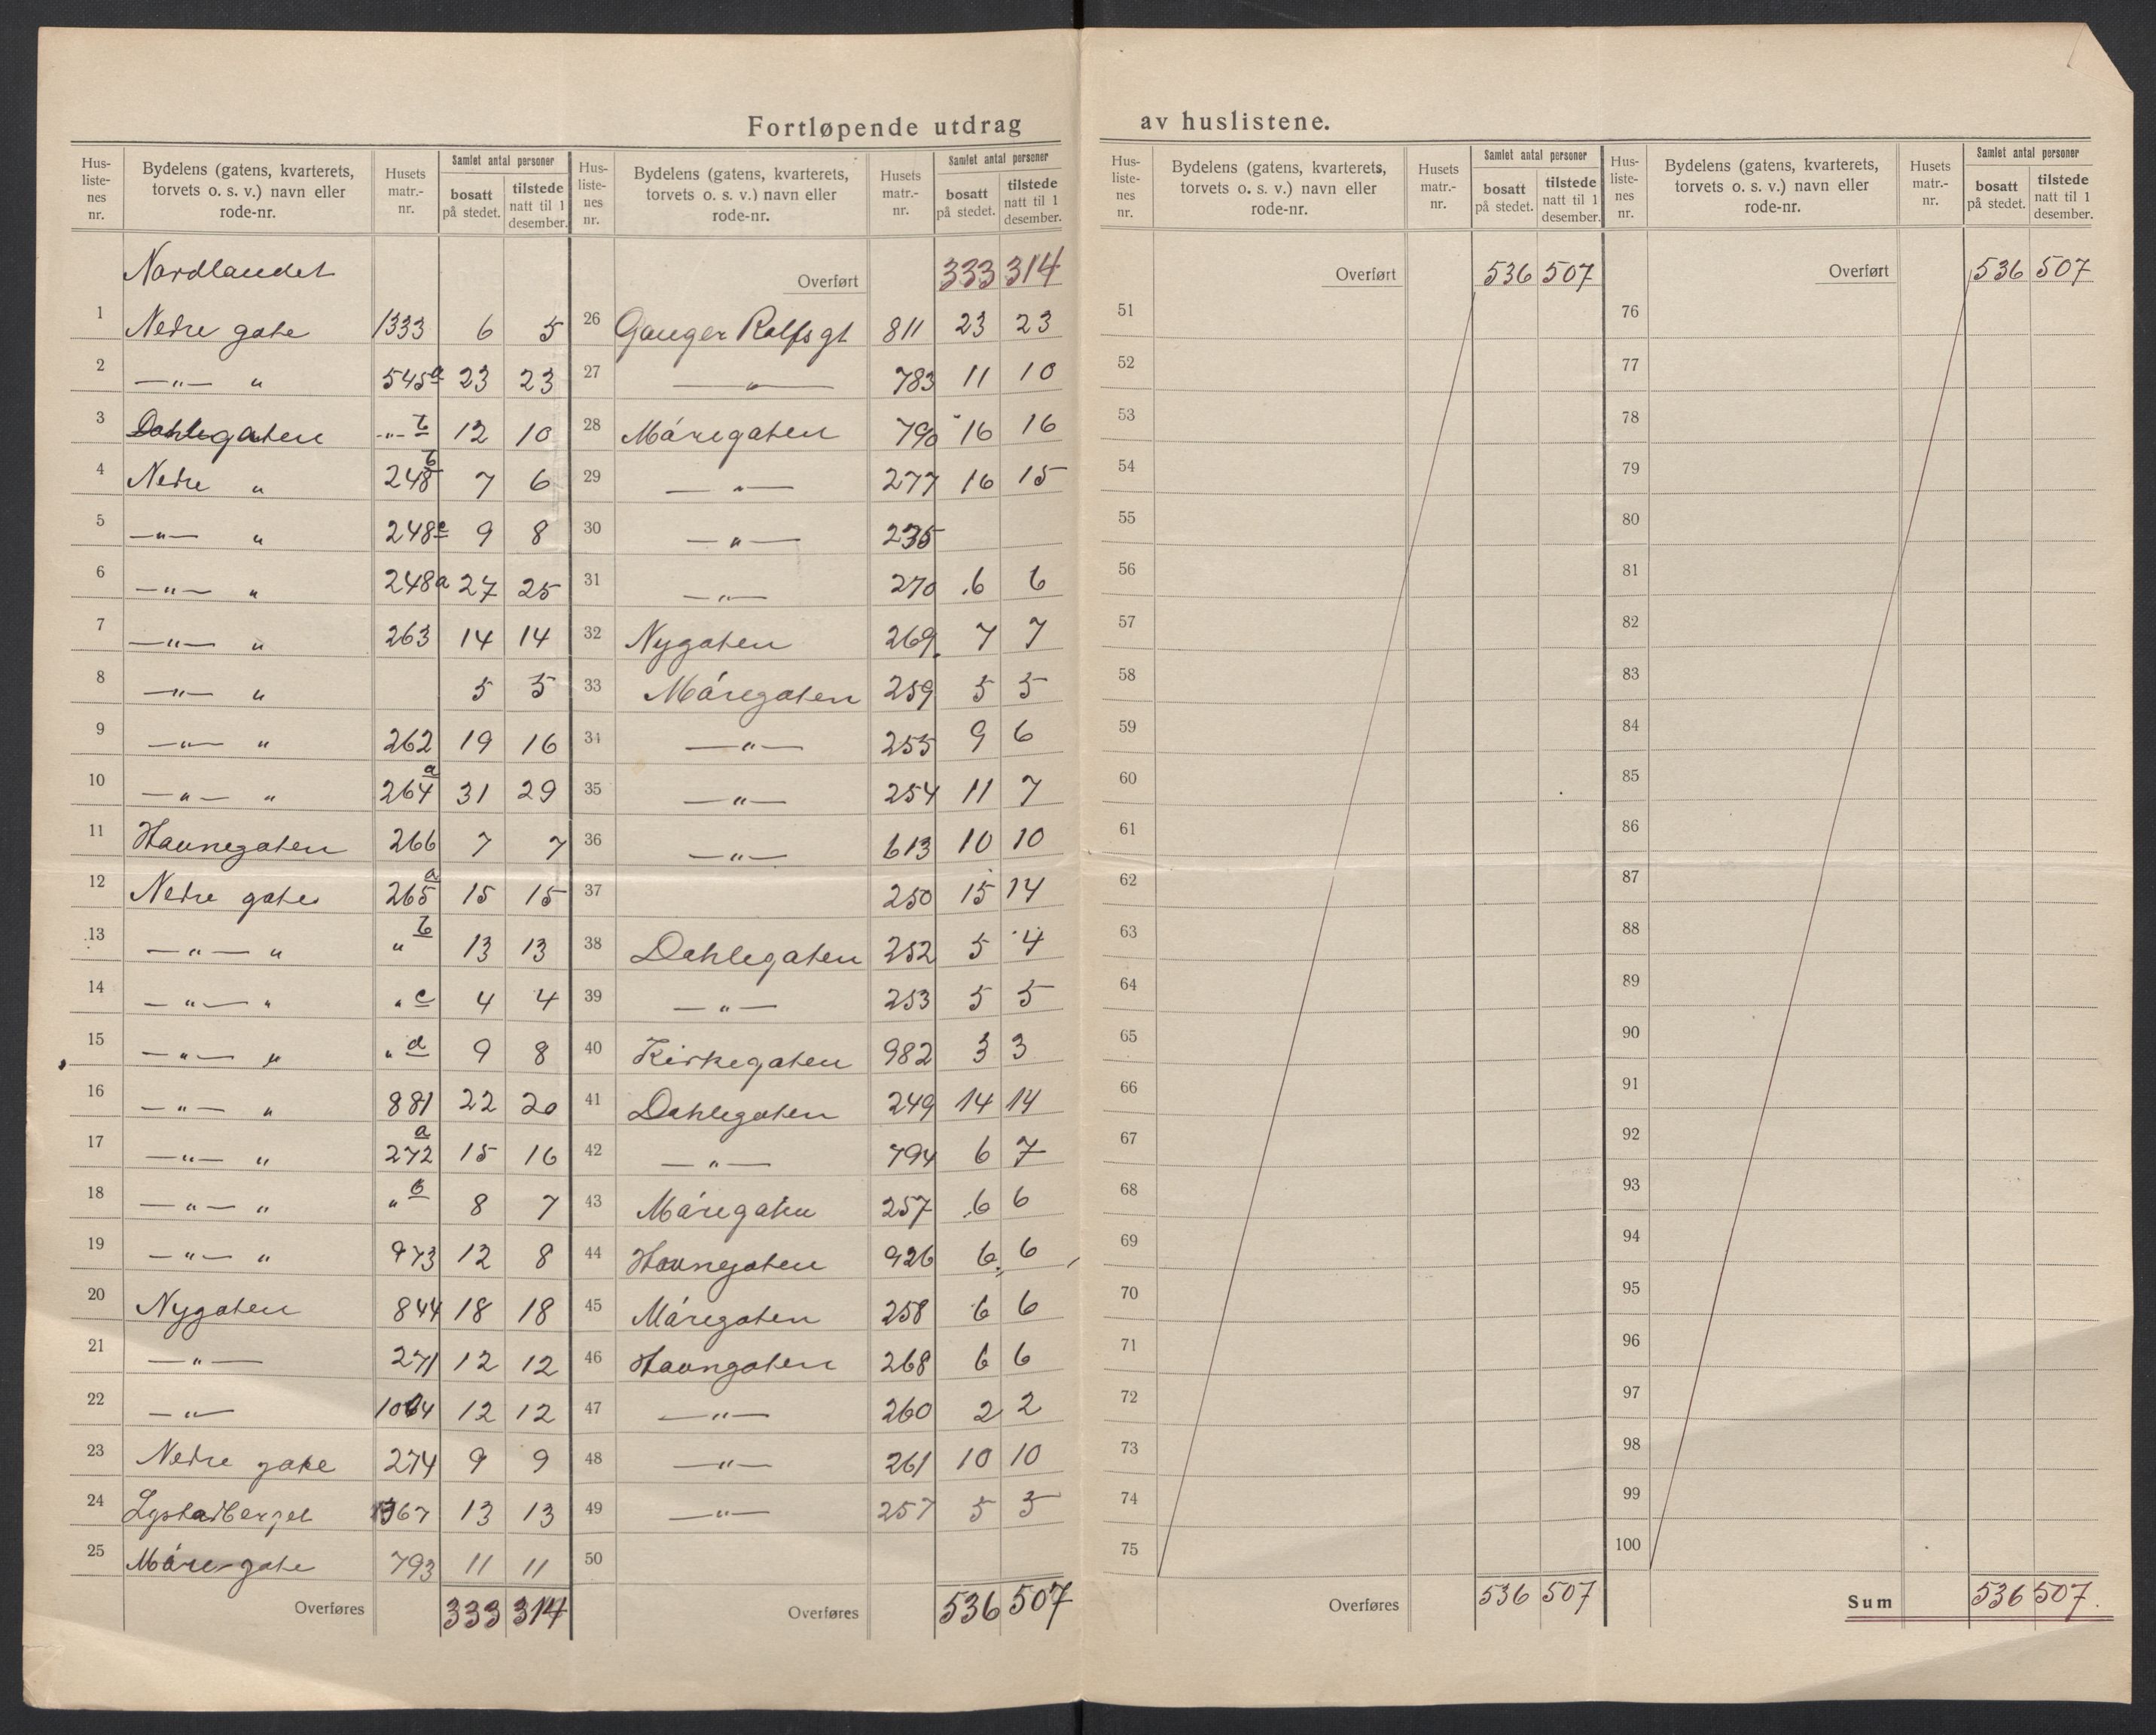 Fortløpende utdrag av huslistene.
Hus-liste-nes nr. | Bydelens (gatens, kvarterets, torvets o. s. v.) navn eller rode-nr. | Husets matr.-nr. | Samlet antal personer | bosatt på stedet. | tilstede natt til 1 desember.
Nordlandet
1 Nedre gate 1333 6 5
2 —„— „ 545a 23 23
3 Dahlegaten -„- b 12 10
4 Nedre „ 248b 7 6
5 —„— „ 248c 9 8
6 —„— „ 248a 27 25
7 —„— „ 263 14 14
8 —„— „ 5 5
9 —„— „ 262 19 16
10 —„— „ 264a 31 29
11 Havnegaten 266 7 7
12 Nedre gate 265a 15 15
13 —„— „ „ b 13 13
14 —„— „ „ c 4 4
15 —„— „ „ d 9 8
16 —„— „ 881 22 20
17 —„— „ 272a 15 16
18 —„— „ „ b 8 7
19 —„— „ 973 12 8
20 Nygaten 844 18 18
21 —„— 271 12 12
22 —„— 1064 12 12
23 Nedre gate 274 9 9
24 1367 13 13
25 Møre-gate 793 11 11
Overføres 333 314
Hus-liste-nes nr. | Bydelens (gatens, kvarterets, torvets o. s. v.) navn eller rode-nr. | Husets matr.-nr. | Samlet antal personer | bosatt på stedet. | tilstede natt til 1 desember.
Overført 333 314
26 Ganger Rolfs gt 811 23 23
27 —„— 783 11 10
28 Møregaten 790 16 16
29 —„— 277 16 15
30 —„— 235
31 —„— 270 6 6
32 Nygaten 269 7 7
33 Møregaten 259 5 5
34 —„— 255 9 6
35 —„— 254 11 7
36 —„— 613 10 10
37 250 15 14
38 Dahlegaten 252 5 4
39 —„— 253 5 5
40 Kirkegaten 982 3 3
41 Dahlegaten 249 14 14
42 —„— 794 6 7
43 Møregaten 257 6 6
44 Havnegaten 926 6 6
45 Møregaten 258 6 6
46 Havngaten 268 6 6
47 —„— 260 2 2
48 —„— 261 10 10
49 —„— 257 5 5
50
Overføres 536 507
Hus-liste-nes nr. | Bydelens (gatens, kvarterets, torvets o. s. v.) navn eller rode-nr. | Husets matr.-nr. | Samlet antal personer | bosatt på stedet. | tilstede natt til 1 desember.
Overført 536 507
51
52
53
54
55
56
57
58
59
60
61
62
63
64
65
66
67
68
69
70
71
72
73
74
75
Overføres 536 507
Hus-liste-nes nr. | Bydelens (gatens, kvarterets, torvets o. s. v.) navn eller rode-nr. | Husets matr.-nr. | Samlet antal personer | bosatt på stedet. | tilstede natt til 1 desember.
Overført 536 507
76
77
78
79
80
81
82
83
84
85
86
87
88
89
90
91
92
93
94
95
96
97
98
99
100
Sum 536 507.